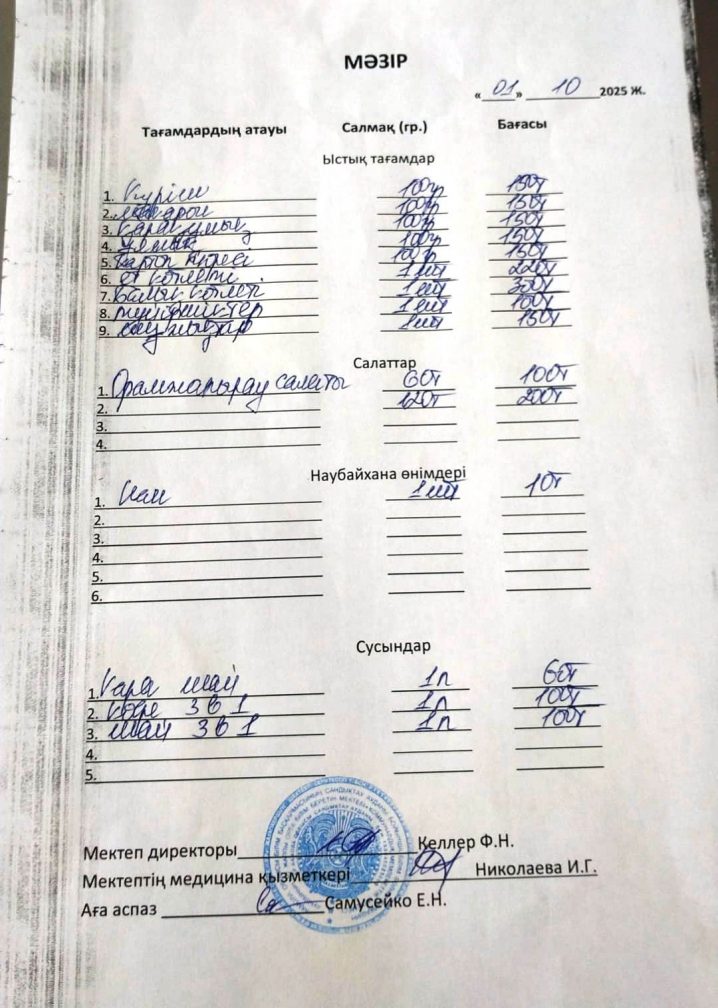 МӘЗІР
«01» 10 2025 Ж.
Тағамдардың атауы Салмақ (гр.) Бағасы
Ыстық тағамдар
1. Күріш 100гр 150т
2. Макарон 100гр 150т
3. Қарақұмық 100гр 150т
4. 100гр 150т
5. Картоп пюресі 100гр 150т
6. Ет котлеті 1шт 220т
7. Балық котлеті 1шт 300т
8. 1шт 100т
9. 1шт 150т
Салаттар
1. Орамжапырақ салаты 60т 100т
2. 120т 200т
3.
4.
Наубайхана өнімдері
1. Нан 1шт 10т
2.
3.
4.
5.
6.
Сусындар
1. Қара шай 1л 60т
2. Кофе 3в1 1л 100т
3. Шай 3в1 1л 100т
4.
5.
Мектеп директоры Келлер Ф.Н.
Мектептің медицина қызметкері Николаева И.Г.
Аға аспаз Самусейко Е.Н.